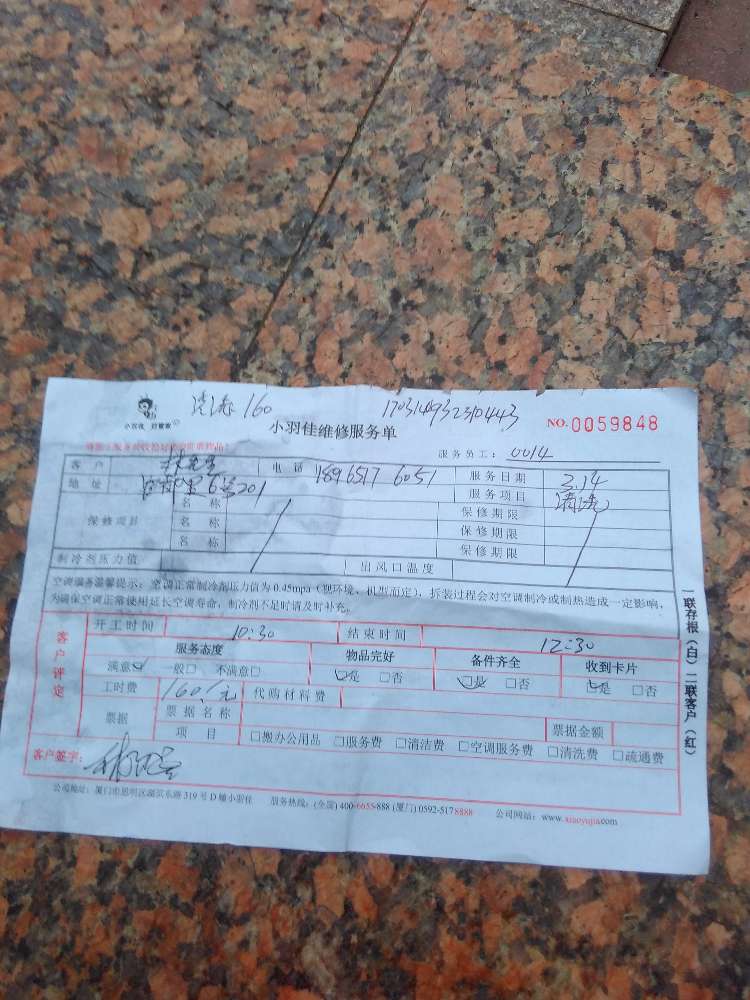 清洗160 17031493230443
小羽佳 好管家
小羽佳维修服务单 NO.0059848
服务员工: 0014
客户 林先生 电话 18965176051 服务日期 3.14
地址 6号201 服务项目 清洗
保修项目 名称 保修期限
名称 保修期限
名称 保修期限
制冷剂压力值 出风口温度
空调服务温馨提示:空调正常制冷剂压力值为0.45mpa(视环境、机型而定),拆装过程会对空调制冷或制热造成一定影响,
为确保空调正常使用延长空调寿命,制冷剂不足时请及时补充。
开工时间 10:30 结束时间 12:30
客户评定
服务态度 物品完好 备件齐全 收到卡片
满意☑ 一般□ 不满意□ ☑是 □否 ☑是 □否 ☑是 □否
工时费 160/元 代购材料费
票据 票据名称 票据金额
项目 □搬办公用品 □服务费 □清洁费 □空调服务费 □清洗费 □疏通费
客户签字:
公司地址:厦门市思明区湖滨东路319号D幢小羽佳 服务热线:(全国)400-6655-888(厦门)0592-5178888 公司网站:www.xiaoyujia.com
一联存根(白)二联客户(红)